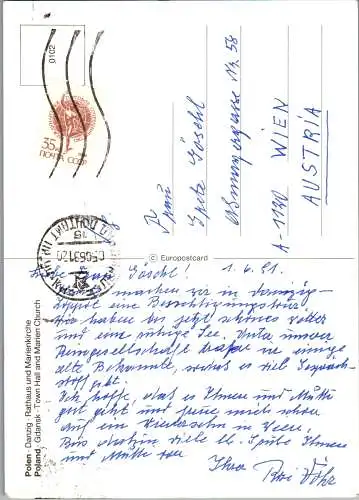 0102
35
ПОЧТА СССР
Frau
Grete Göschl
A-1120 WIEN
AUSTRIA
© Europostcard
Polen - Danzig - Rathaus und Marienkirche
Poland - Gdańsk - Town Hall and Marien Church
Liebe Frau Göschl! 1.6.91.
machen wir in Danzig-
eine Besichtigungstour
Wir haben bis jetzt schönes Wetter
und eine ruhige See. Unter unserer
Reisegesellschaft trafen wir einige
alte Bekannte, sodass es viel Gesprächs-
stoff gibt.
Ich hoffe, dass es Ihnen und Mutti
gut geht und freue mich schon
auf ein Wiedersehn in Wien.
Bis dahin viele lb. Grüße Ihnen
und Mutti von
Ihrer